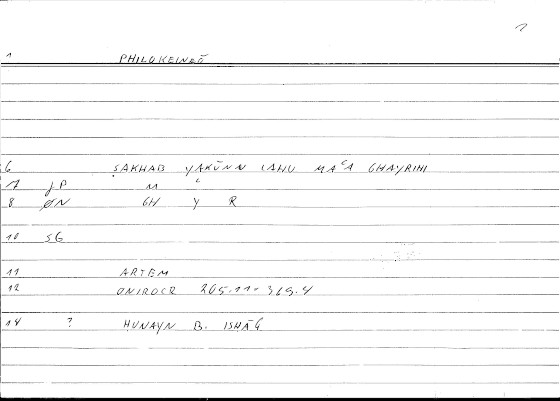 1
1 PHILOKEINŌ
6 ṢAKHAB YAKŪNN LAHU MAʿA GHAYRIHI
7 JP M ʿ
8 ØN GH Y R
10 SG
11 ARTEM
12 ONIROCR 205.11 - 365.4
14 ? HUNAYN B. ISHĀQ